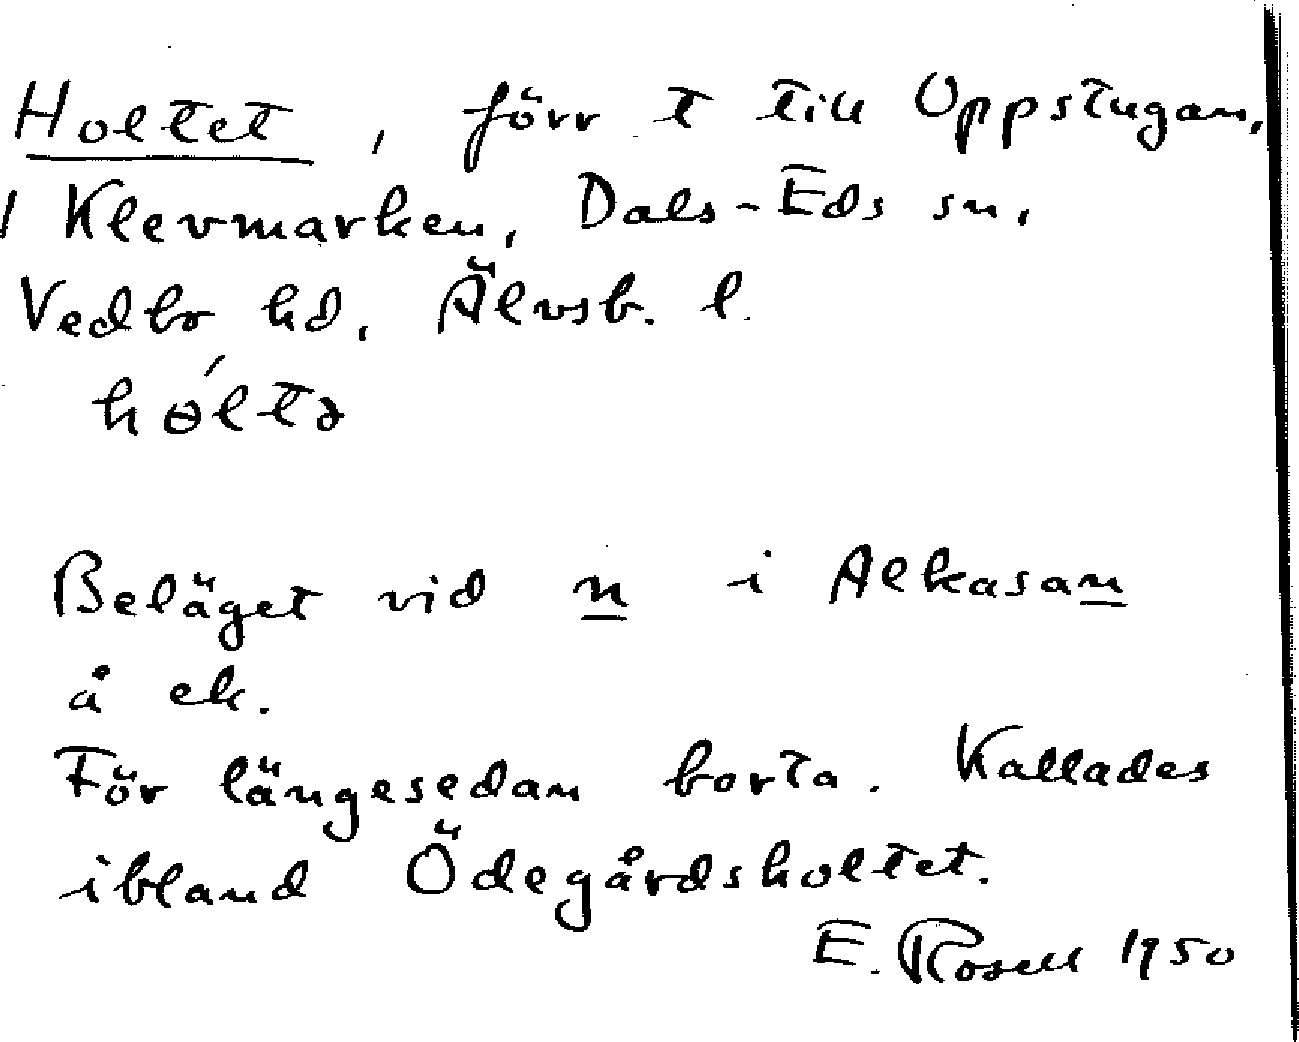 Holtet, förr t till Uppstugan,
1 Klevmarken, Dals-Eds sn,
Vedbo hd, Älvsb. l.
hɵ́ltə
Beläget vid n i Alkasan
å ek.
För längesedan borta. Kallades
ibland Ödegårdsholtet.
E. Rosell 1950